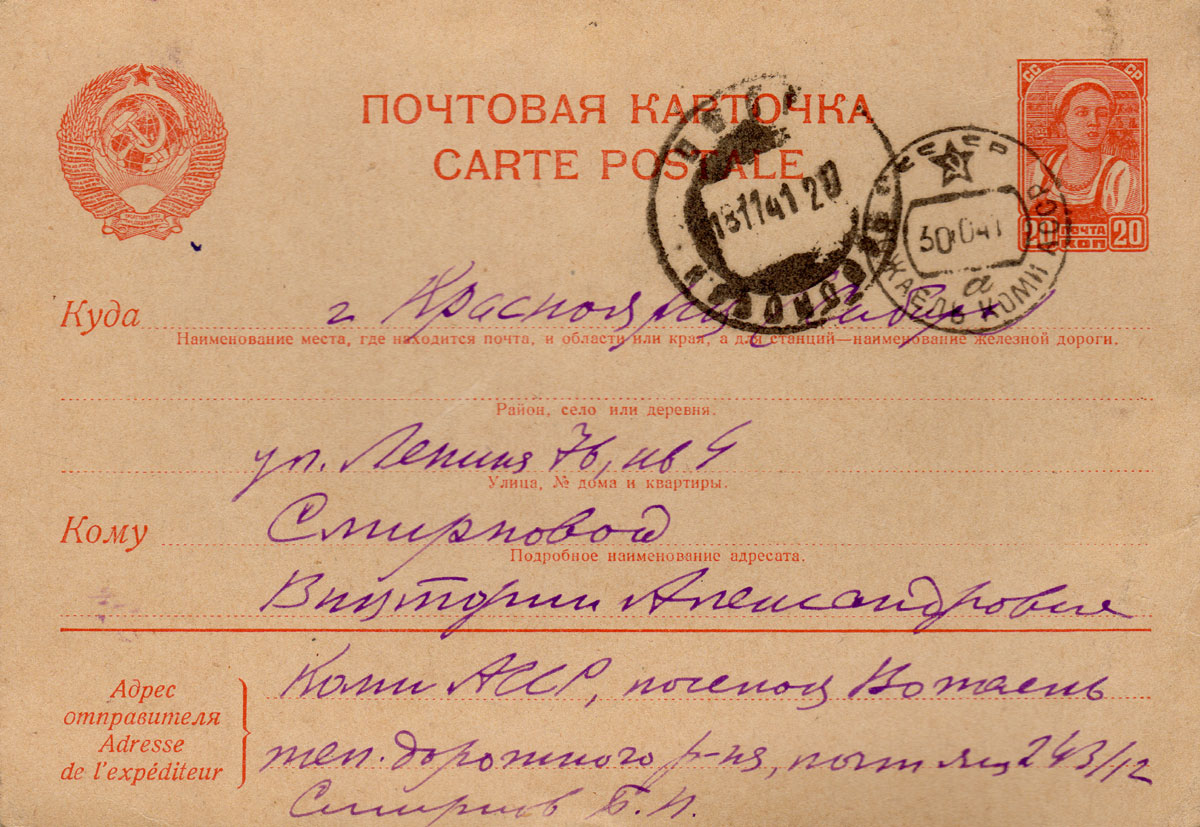 ПОЧТОВАЯ КАРТОЧКА
CARTE POSTALE
СС СР
20 ПОЧТА 20
КОП
181141 20
СССР
ЖАЕЛЬ КОМИ АССР
а
Куда г. Красноярск, Сибирск
Наименование места, где находится почта, и области или края, а для станций—наименование железной дороги.
Район, село или деревня.
ул. Ленина 76, кв 4
Улица, № дома и квартиры.
Кому Смирновой
Подробное наименование адресата.
Виктории Александровне
Адрес отправителя
Adresse de l'expéditeur
Коми АССР, поселок Вожаель
жел. дорожного р-на, почт ящ 243/12
Смирнов Б.И.